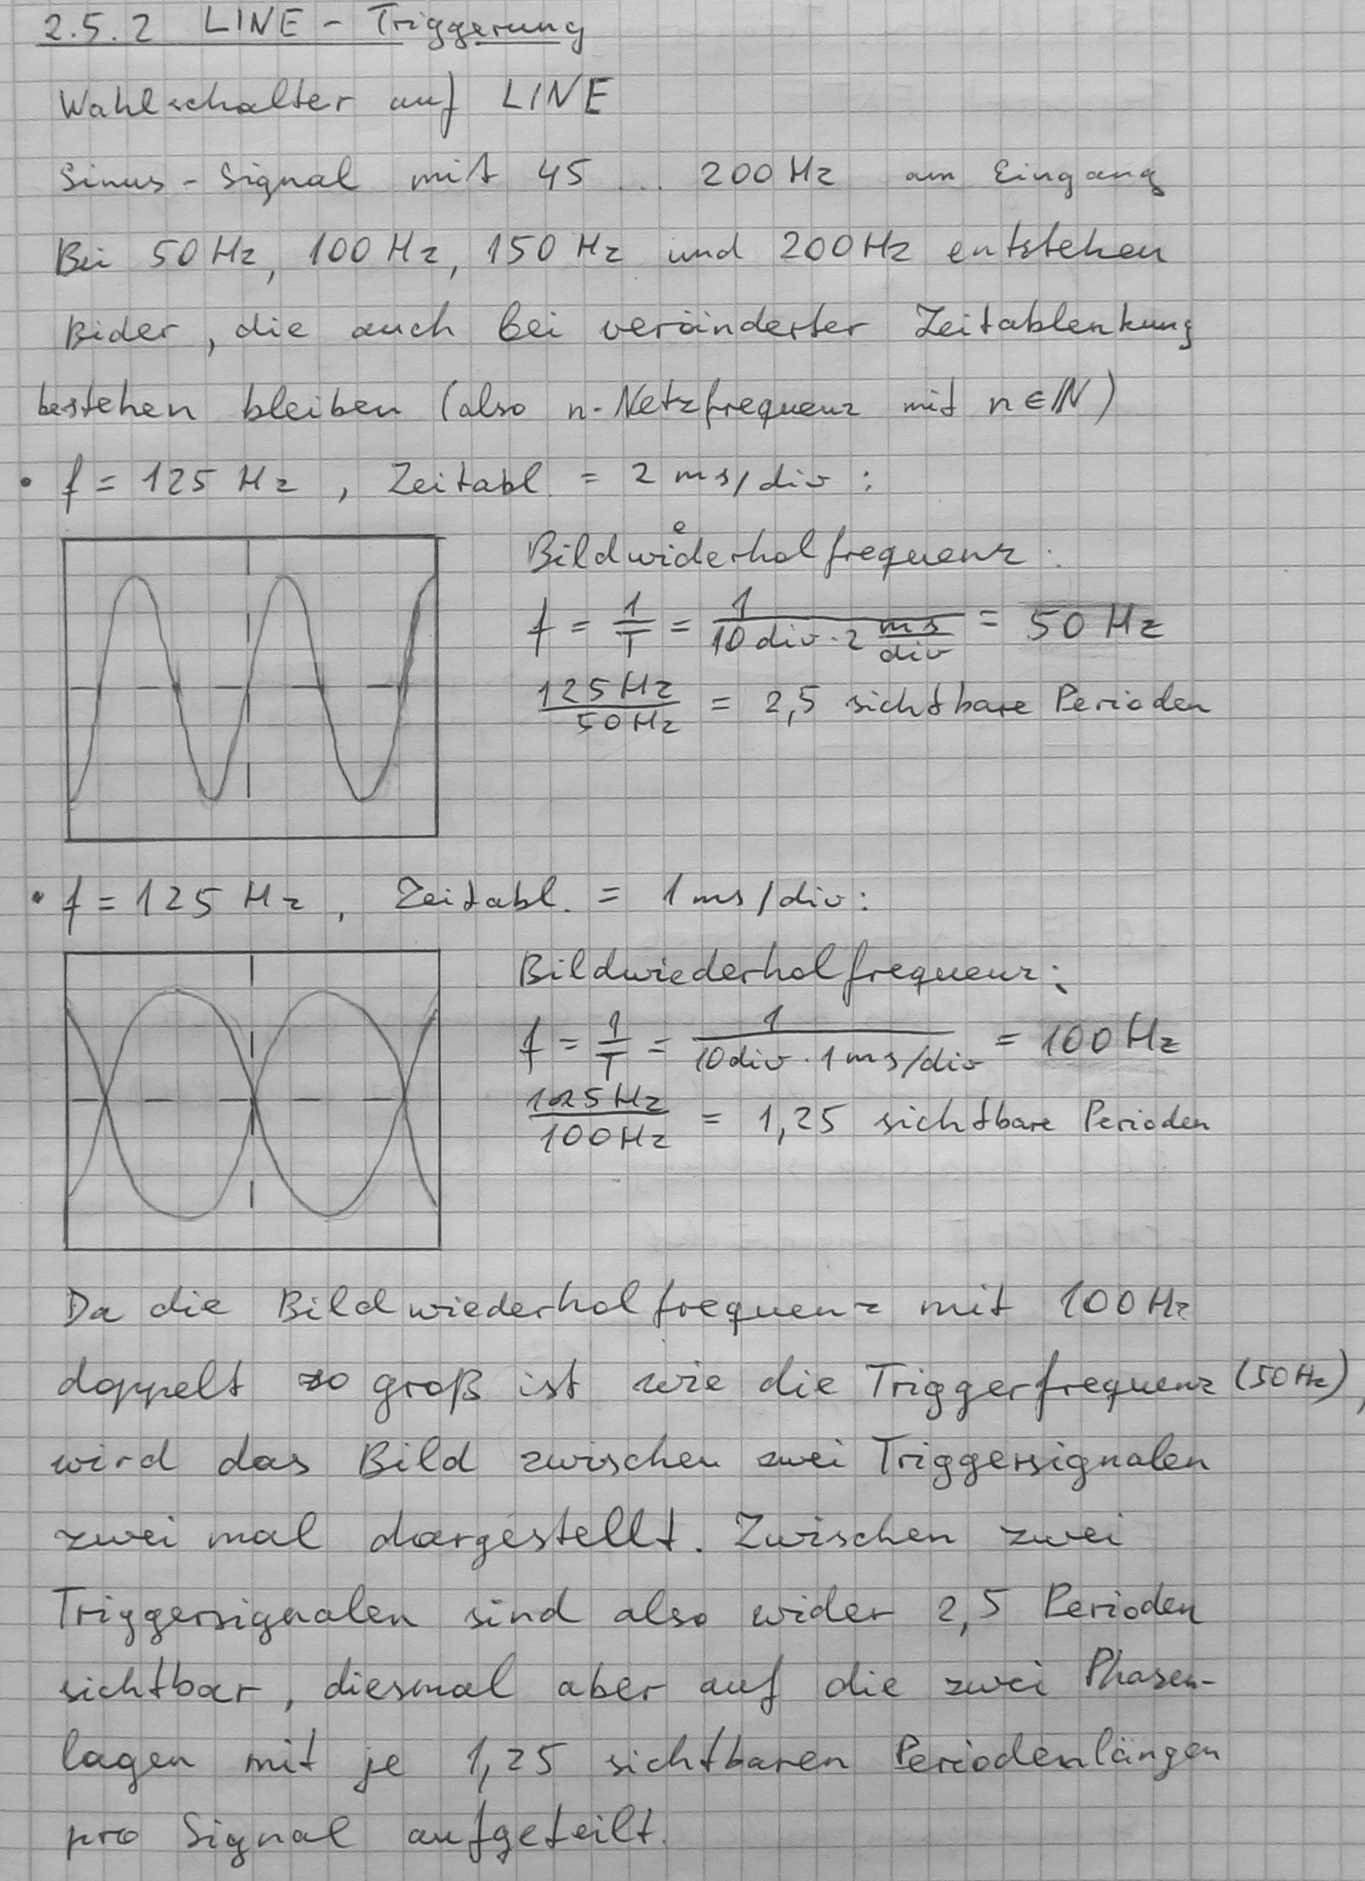 2.5.2 LINE - Triggerung
Wahlschalter auf LINE
Sinus - Signal mit 45 ... 200 Hz am Eingang
Bei 50 Hz, 100 Hz, 150 Hz und 200 Hz entstehen
Bider, die auch bei veränderter Zeitablenkung
bestehen bleiben (also n·Netzfrequenz mit n∈ℕ)
• f = 125 Hz, Zeitabl. = 2 ms/div:
Bildwiederholfrequenz:
f = 1/T = 1/(10 div · 2 ms/div) = 50 Hz
125 Hz/50 Hz = 2,5 sichtbare Perioden
• f = 125 Hz, Zeitabl. = 1 ms/div:
Bildwiederholfrequenz:
f = 1/T = 1/(10 div · 1 ms/div) = 100 Hz
125 Hz/100 Hz = 1,25 sichtbare Perioden
Da die Bildwiederholfrequenz mit 100 Hz
doppelt so groß ist wie die Triggerfrequenz (50 Hz),
wird das Bild zwischen zwei Triggersignalen
zwei mal dargestellt. Zwischen zwei
Triggersignalen sind also wider 2,5 Perioden
sichtbar, diesmal aber auf die zwei Phasen-
lagen mit je 1,25 sichtbaren Periodenlängen
pro Signal aufgeteilt.